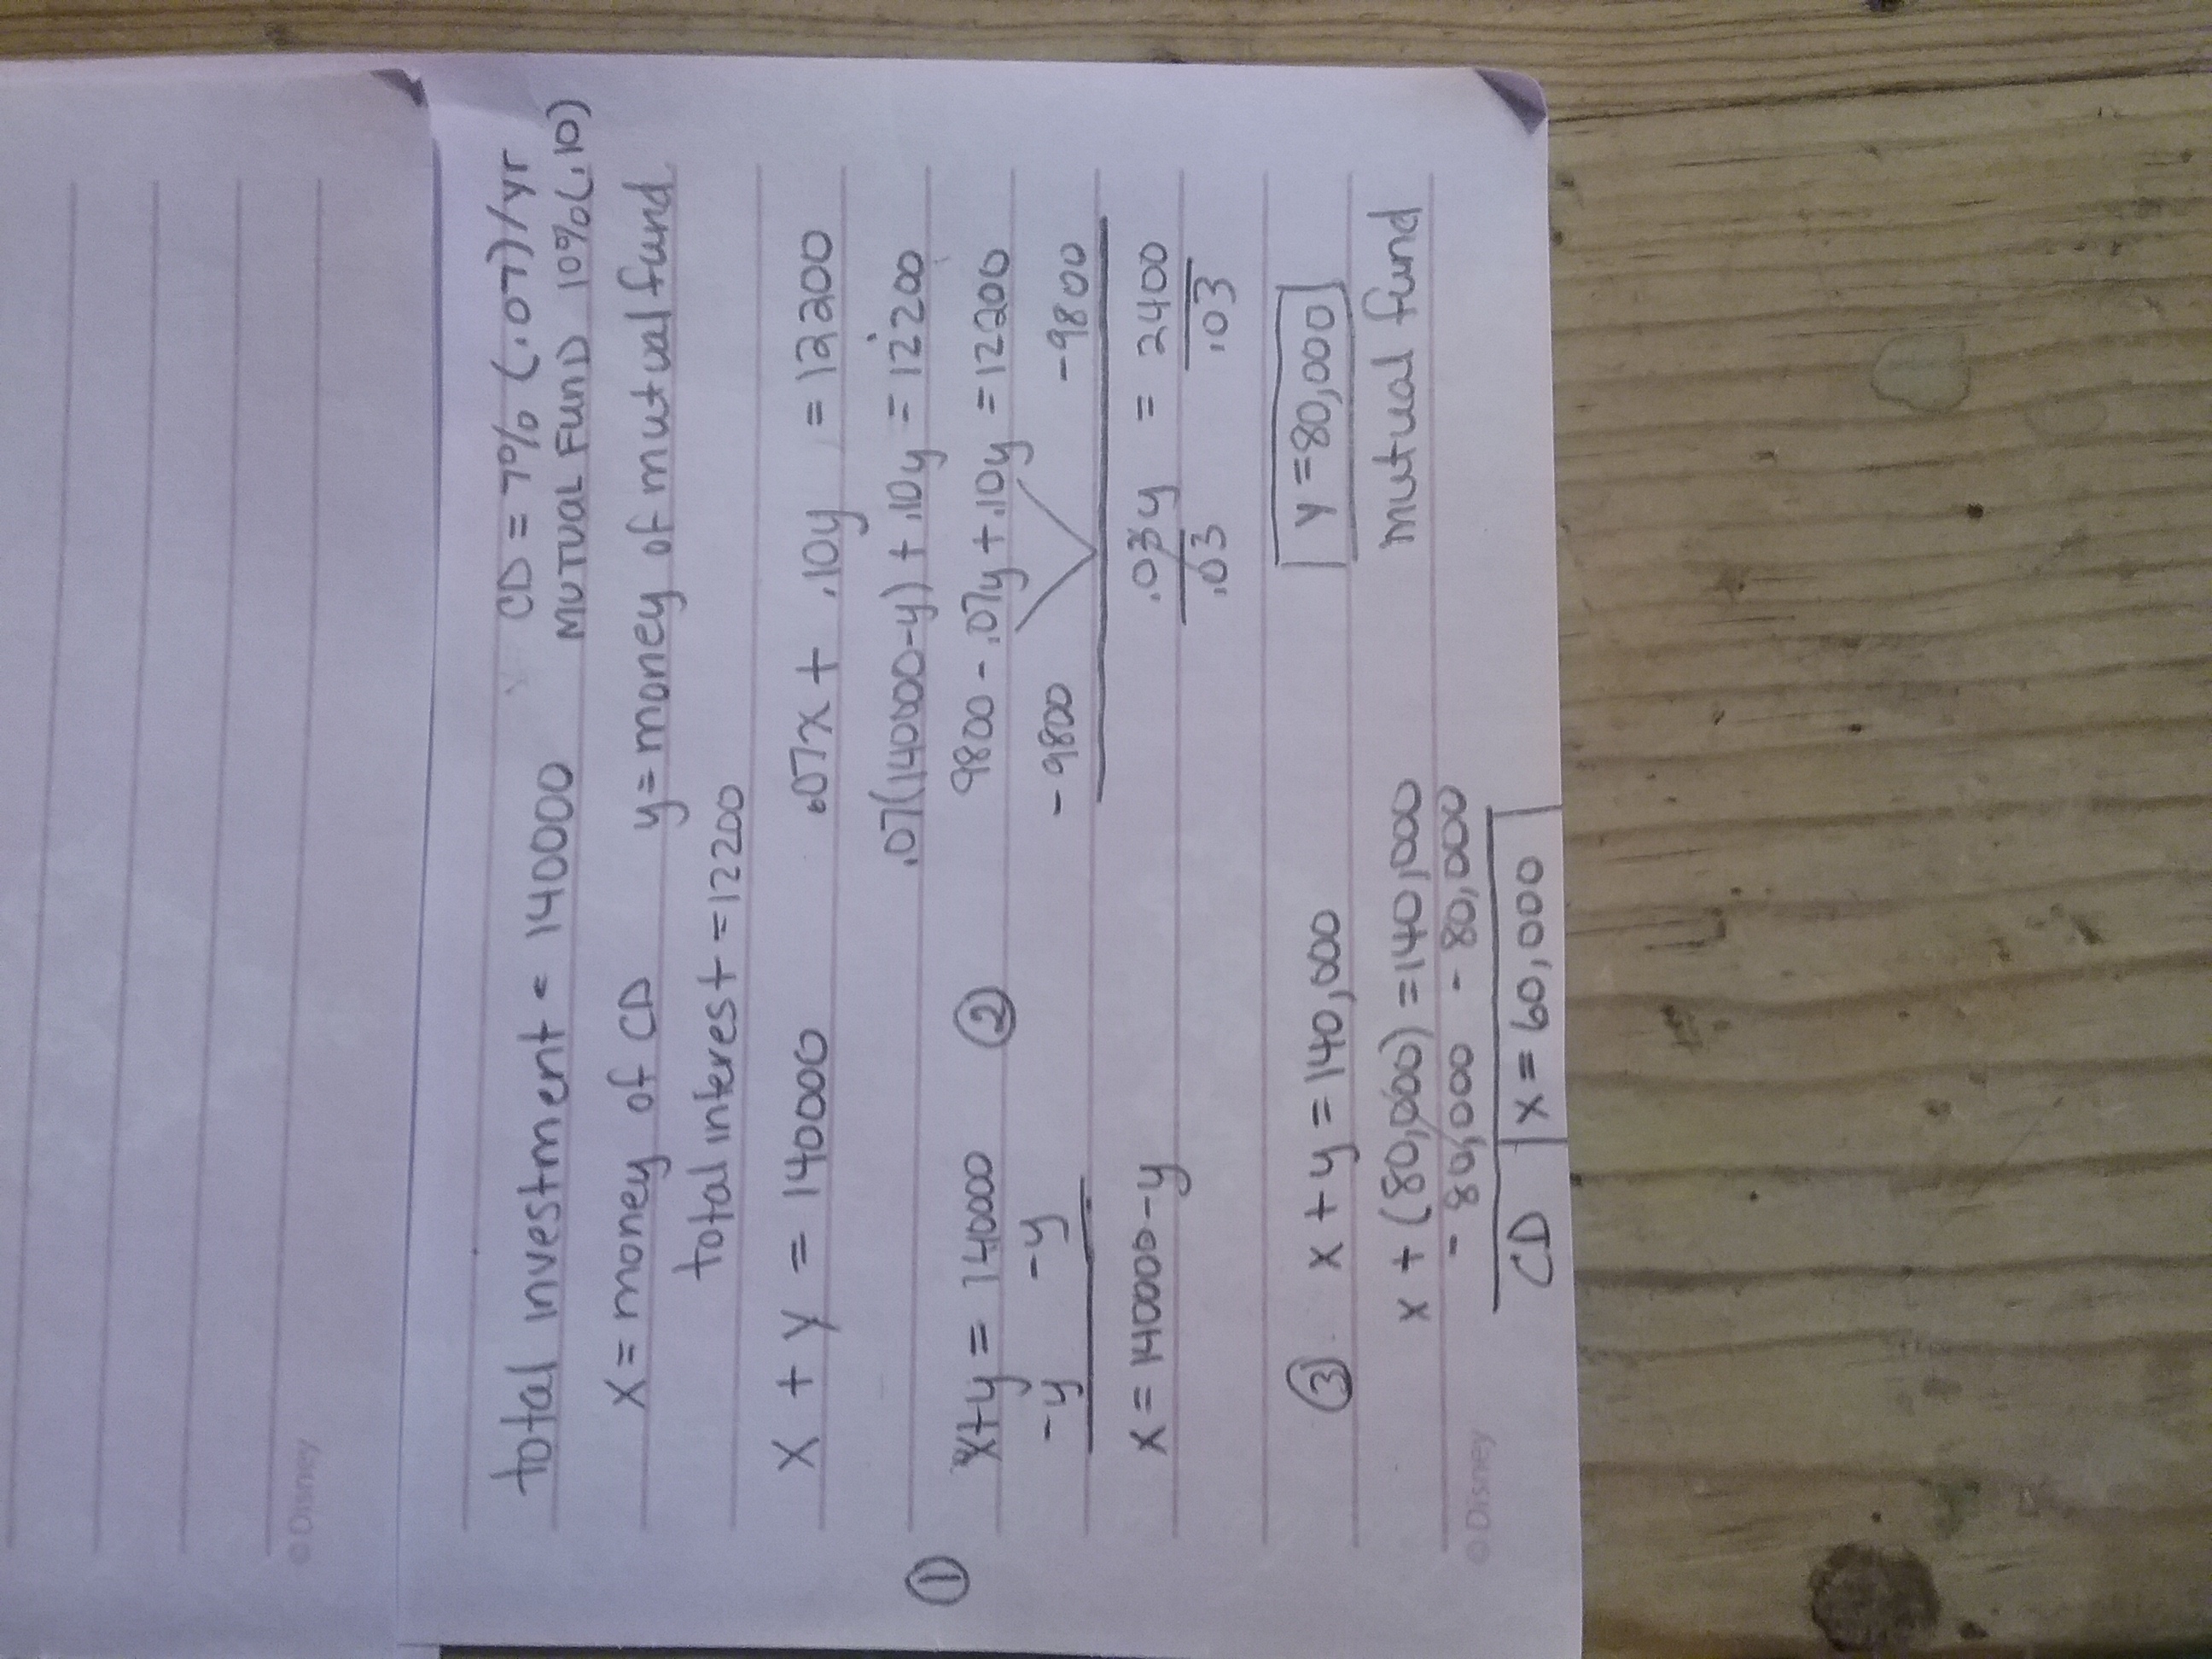 ©Disney
total investment = 140000 CD = 7% (.07)/yr
MUTUAL FUND 10% (.10)
x = money of CD y = money of mutual fund
total interest = 12200
x + y = 140000 .07x + .10y = 12200
① .07(140000-y) + .10y = 12200
x+y = 140000 ② 9800 - .07y + .10y = 12200
-y -y -9800 -9800
x = 140000-y .03y = 2400
.03 .03
③ x + y = 140,000 y = 80,000
x + (80,000) = 140,000 mutual fund
- 80,000 - 80,000
CD x = 60,000
©Disney